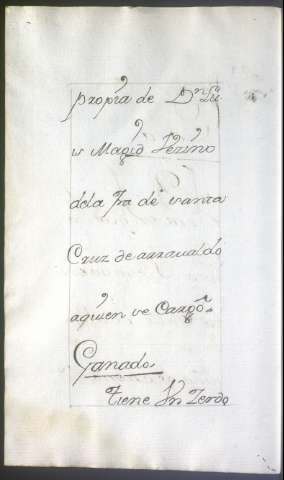 propria de Dn Lu
is Magro Vezino
de la Va de santa
Cruz de arravaldo
aquien se Cargo.
Ganado.
Tiene Un Zerdo